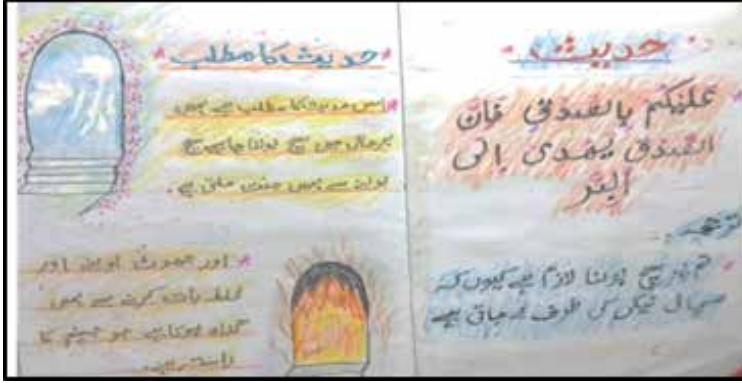 حدیث
علیکم بالصدق فان
الصدق یھدی الی
البر
ترجمہ:۔
تم پر سچ بولنا لازم ہے کیوں کہ
سچائی نیکی کی طرف لے جاتی ہے
حدیث کا مطلب
اس حدیث کا مطلب ہے ہمیں
ہر حال میں سچ بولنا چاہیے سچ
بولنے سے ہمیں جنت ملتی ہے۔
اور جھوٹ بولنے اور
غلط بات کرنے سے ہمیں
گناہ ہوتا ہے جو جہنم کا
راستہ ہے۔